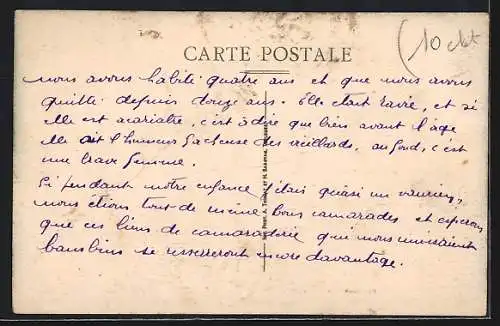 CARTE POSTALE
10 oct
nous avons habité quatre ans et que nous avons
quitté depuis douze ans. Elle était ravie, et si
elle est acariâtre, c'est à dire que bien avant l'âge
elle ait l'humeur facheuse des vieillards, au fond, c'est
une brave femme.
Si pendant notre enfance j'étais quasi un vaurien,
nous étions tout de même bons camarades et espérons
que ces liens de camaraderie qui nous unissaient
bambins se resserreront encore davantage.